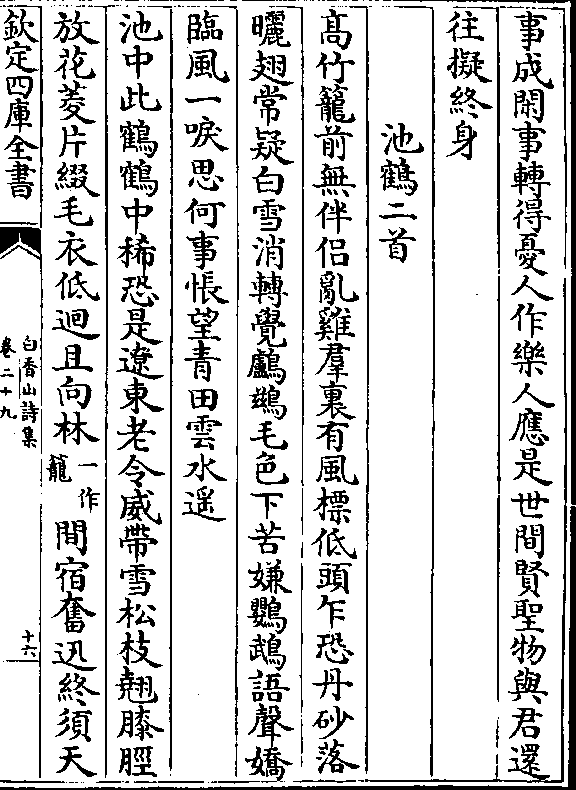 事成閑事轉得憂人作樂人應是世間賢聖物與君還
往擬終身
池鶴二首
髙竹籠前無伴侣亂雞羣裏有風標低頭乍恐丹砂落
曬翅常疑白雪消轉覺鸕鷀毛色下苦嫌鸚鵡語聲嬌
臨風一唳思何事悵望青田雲水遥
池中此鶴鶴中稀恐是遼東老令威帶雪松枝翹膝脛
放花菱片綴毛衣低迴且向林一作籠間宿奮迅終須天
欽定四庫全書
白香山詩集
卷二十九
十六